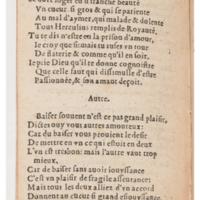 Vn cueur si gros & qui se patiente
Au mal d'aymer, qui malade & dolente
Tous Herculins remplis de Royauté,
Tu te dis n'estre en la prison d'amour,
Ie croy que si mais tu vses en tour
De flaterie & comme qu'il en soit.
Ie prie Dieu qu'il te donne cognoistre
Que celle faut qui dissimulle d'estre
Passionnée, & son amant deçoit.
Autre.
Baiser souuent n'est ce pas grand plaisir,
Dictes ouy vous autres amoureux:
Car du baiser vous prouient le desir
De mettre en vn ce qui estoit en deux
L'vn est tresbon: mais l'autre vaut trop
mieux,
Car de baiser sans auoir iouyssance
C'est vn plaisir de fragile asseurance:
Mais tous les deux alliez d'vn accord
Donnent au cueur si grand esiouyssance